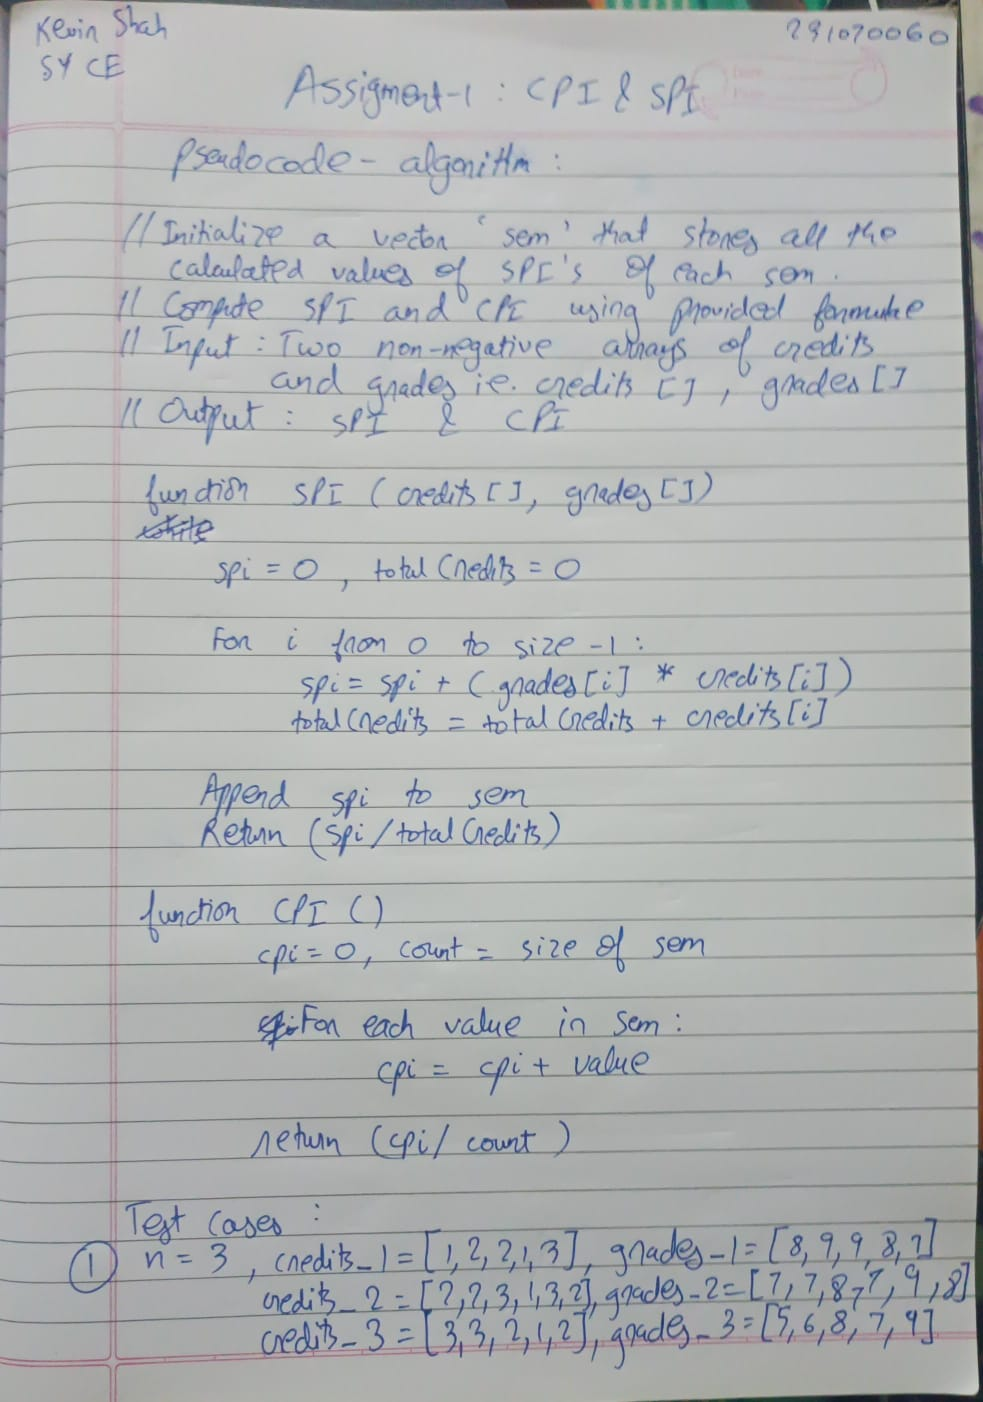 Kevin Shah
291070060
SY CE
Assigment-1 : CPI & SPI
Pseudocode - algorithm :
// Initialize a vector 'sem' that stores all the
calculated values of SPI's of each sem.
// Compute SPI and CPI using provided formulae
// Input : Two non-negative arrays of credits
and grades ie. credits [], grades []
// Output : SPI & CPI
function SPI (credits [], grades [])
spi = 0, total Credits = 0
For i from 0 to size -1 :
spi = spi + (grades [i] * credits [i])
total Credits = total Credits + credits [i]
Append spi to sem
Return (spi / total Credits)
function CPI ()
cpi = 0, count = size of sem
For each value in sem :
cpi = cpi + value
return (cpi / count)
Test cases :
① n = 3, credits_1 = [1, 2, 2, 1, 3], grades_1 = [8, 9, 9, 8, 7]
credits_2 = [2, 2, 3, 1, 3, 2], grades_2 = [7, 7, 8, 7, 9, 8]
credits_3 = [3, 3, 2, 1, 2], grades_3 = [5, 6, 8, 7, 9]